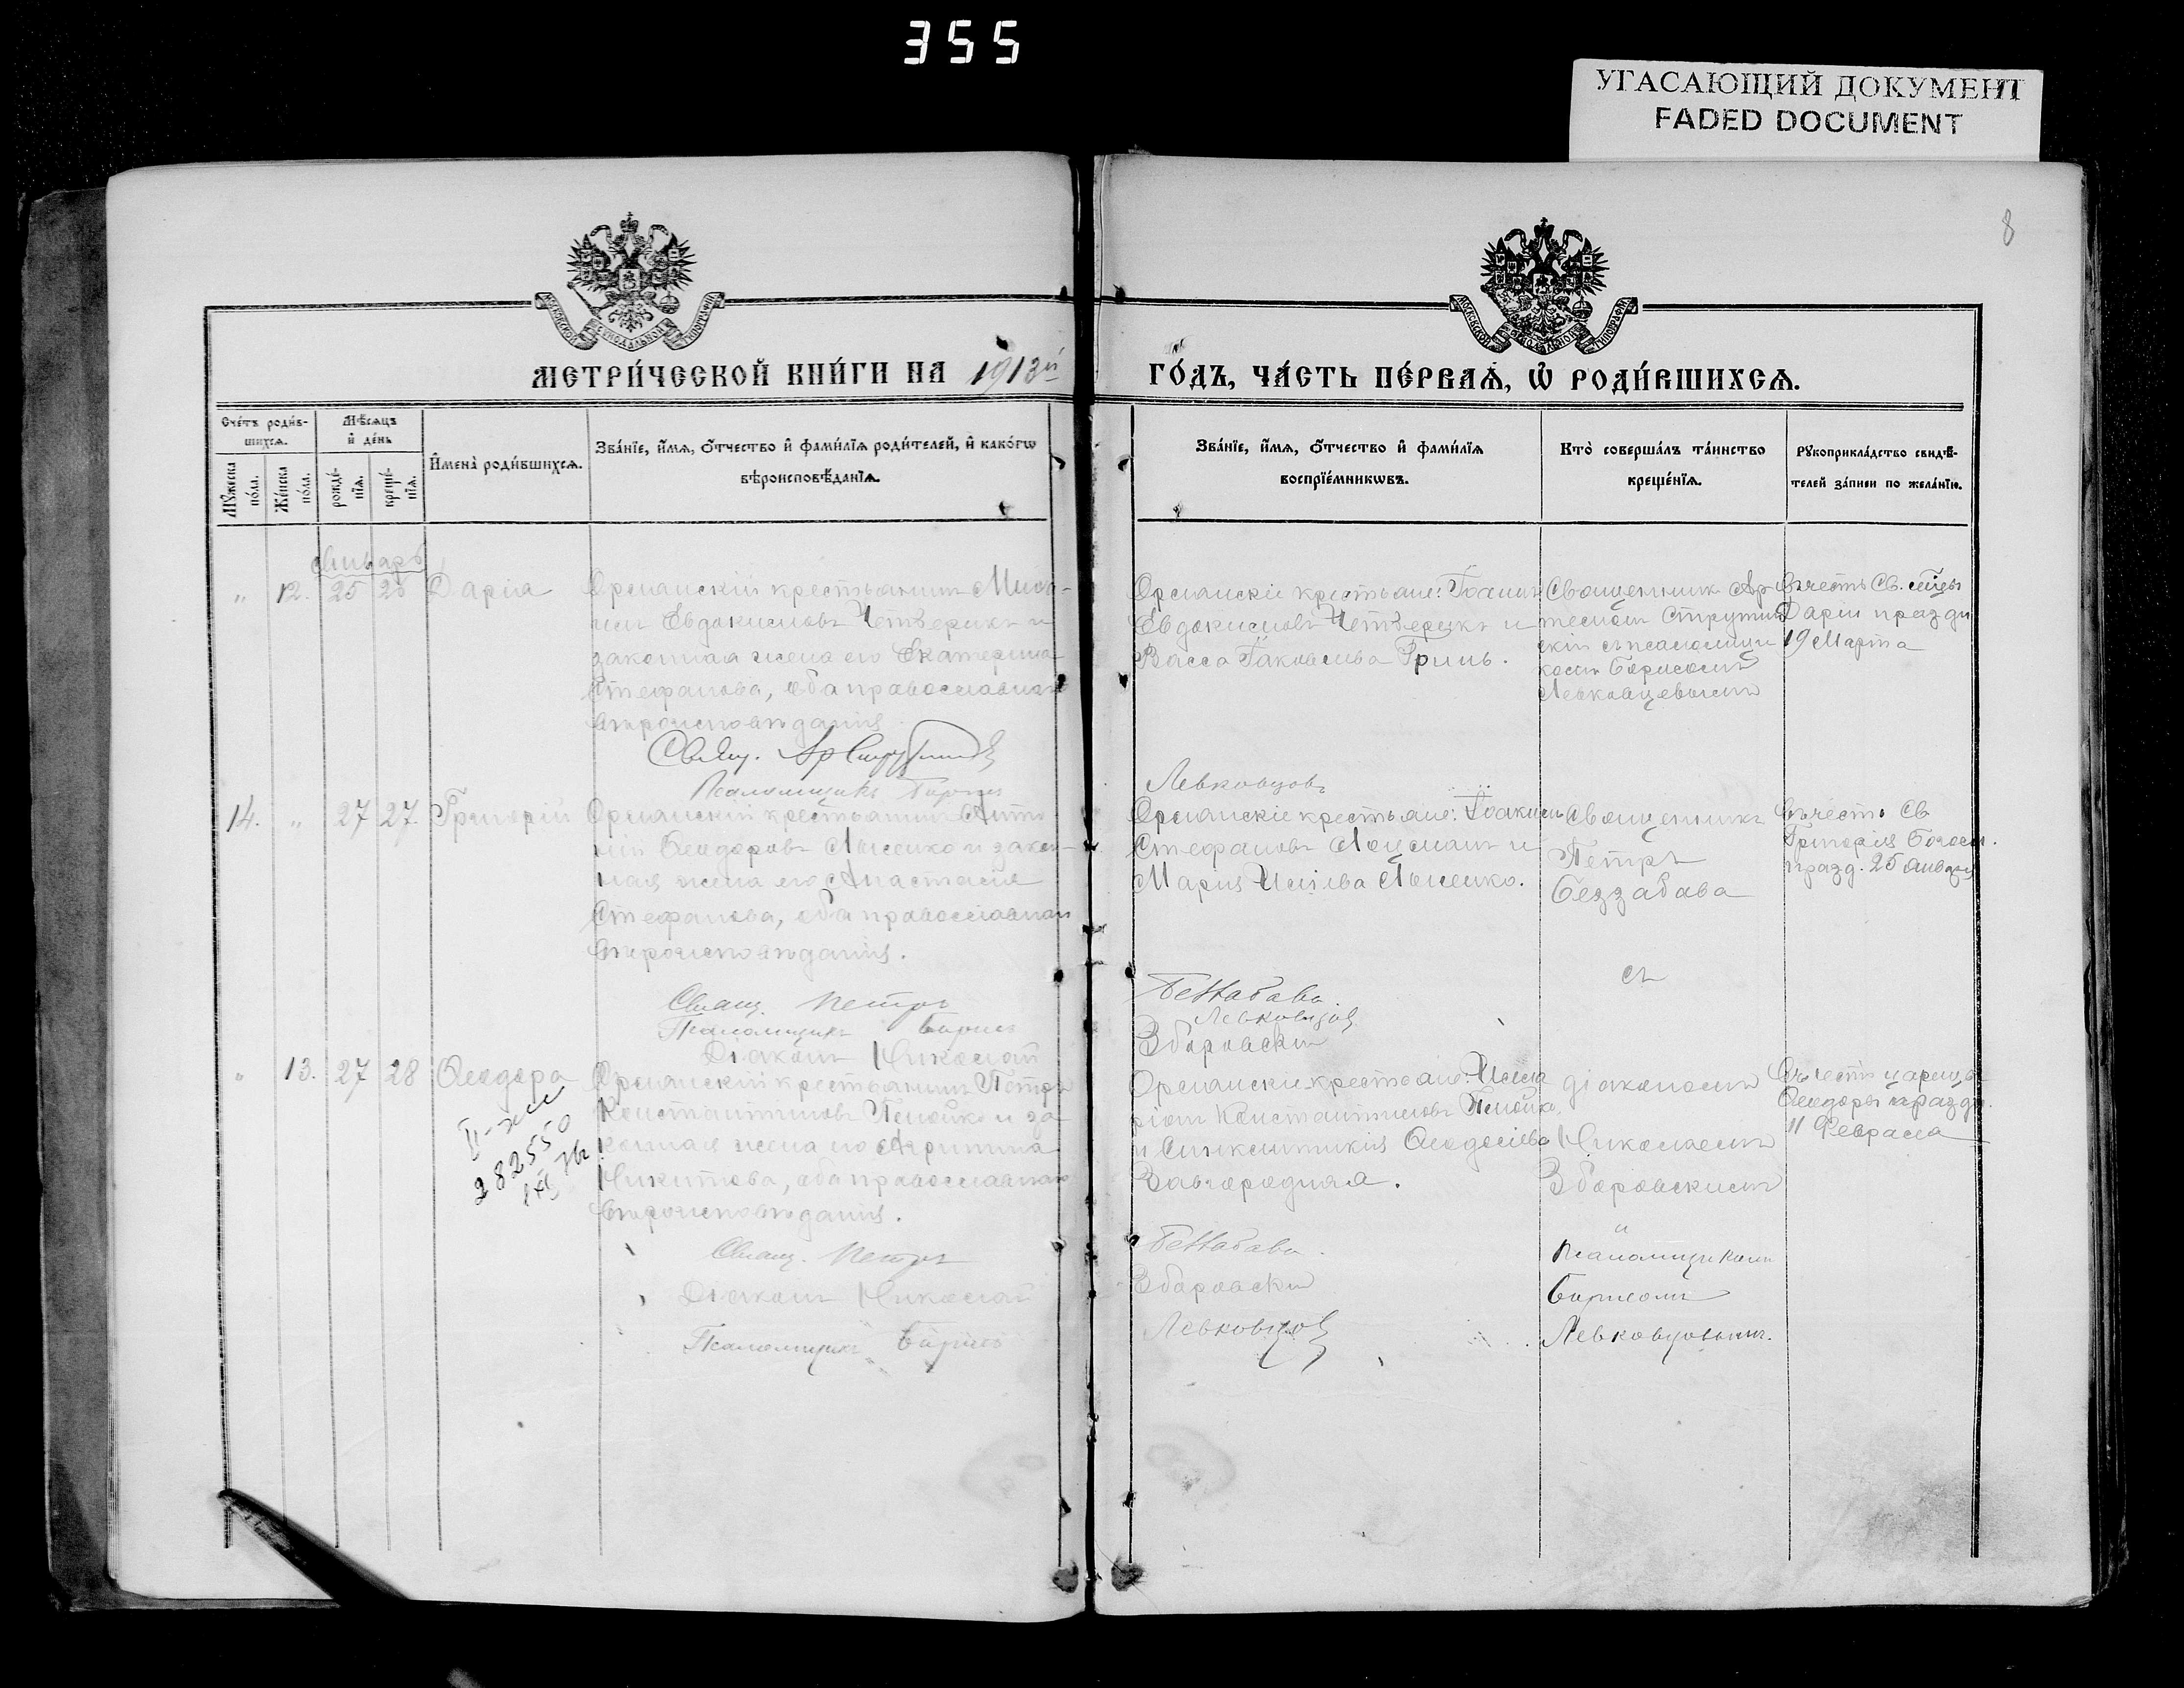 355
УГАСАЮЩИЙ ДОКУМЕНТ
FADED DOCUMENT
8
МОСКОВСКОЙ СУНОДАЛЬНОЙ ТИПОГРАФІИ
МОСКОВСКОЙ СУНОДАЛЬНОЙ ТИПОГРАФІИ
МЕТРИ́ЧЕСКОЙ КНИ́ГИ НА 1913й
ГО́ДЪ, ЧА́СТЬ ПЕ́РВАЯ, Ѡ҆ РОДИ́ВШИХСЯ.
Сче́тъ роди́в-
шихся.
Мѣ́сяцъ
и҆ де́нь
Мꙋ́жеска
по́ла.
Же́нска
по́ла.
рожде́-
нїя.
креще́-
нїя.
И҆мена̀ роди́вшихся.
Зва́нїе, и҆́мя, ѻ҆́тчество и҆ фами́лїя роди́телей, и҆ како́гѡ
вѣроисповѣ́данїя.
Зва́нїе, и҆́мя, ѻ҆́тчество и҆ фами́лїя
воспрїе́мникѡвъ.
Кто̀ соверша́лъ та́инство
креще́нїя.
Рꙋкоприкла́дство свидѣ́-
телей за́писи по жела́нїю.
Январь
" 12. 25 25 Дарія
Орланскій крестьянинъ
Евдокимовъ Четверикъ и
законная жена его Екатерина
Стефанова, оба православнаго
вѣроисповѣданія.
Свящ. Ар Струтинскій
Псаломщикъ Борисъ
Орланскіе крестьяне: Іоаннъ
Евдокимовъ Четверикъ и
Васса Іаковлева Гринь.
Левковцовъ
Священникъ Ар-
темій Струтин-
скій съ псаломщи-
комъ Борисомъ
Левковцевымъ
Въ честь Св. муцы
Даріи праздн
19 Марта
14. " 27 27. Григорій
Орланскій крестьянинъ Анто
ній Ѳеодоровъ Лысенко и закон-
ная жена его Анастасія
Стефанова, оба православнаго
вѣроисповѣданія.
Свящ. Петръ
Псаломщикъ Борисъ
Діаконъ Николай
Орланскіе крестьяне: Іоакимъ
Стефановъ Лоцманъ и
Марія Лысенко.
Беззабава.
Левковцов
Збаровскій
Священникъ
Петръ
Беззабава
съ
Въ честь Св
Григорія Богосл.
празд. 25 Января
" 13. 27 28 Ѳеодора
28255 0
Орланскій крестьянинъ Петръ
Константиновъ и за-
конная жена его Агриппина
Никитова, оба православнаго
вѣроисповѣданія.
Свящ. Петръ
Діаконъ Николай
Псаломщикъ Борисъ
Орланскіе крестьяне: Илла
ріонъ Константиновъ
и Синклитикія Ѳеодосіева
Завгородная.
Беззабава.
Збаровскій
Левковцов
діакономъ
Николаемъ
Збаровскимъ
и
псаломщикомъ
Борисомъ
Левковцовымъ.
Въ честь царицы
Ѳеодоры праздн.
11 Февраля